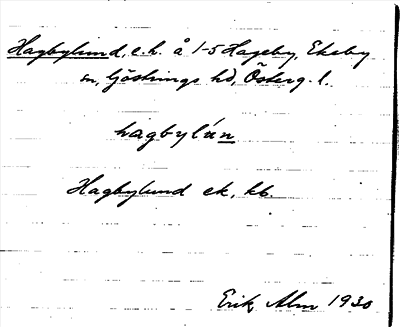 Hagbylund, e.h. å 1-5 Hageby, Ekeby
sn, Göstrings hd, Österg. l.
hagbylún
Hagbylund ek, kb.
Erik Alm 1930